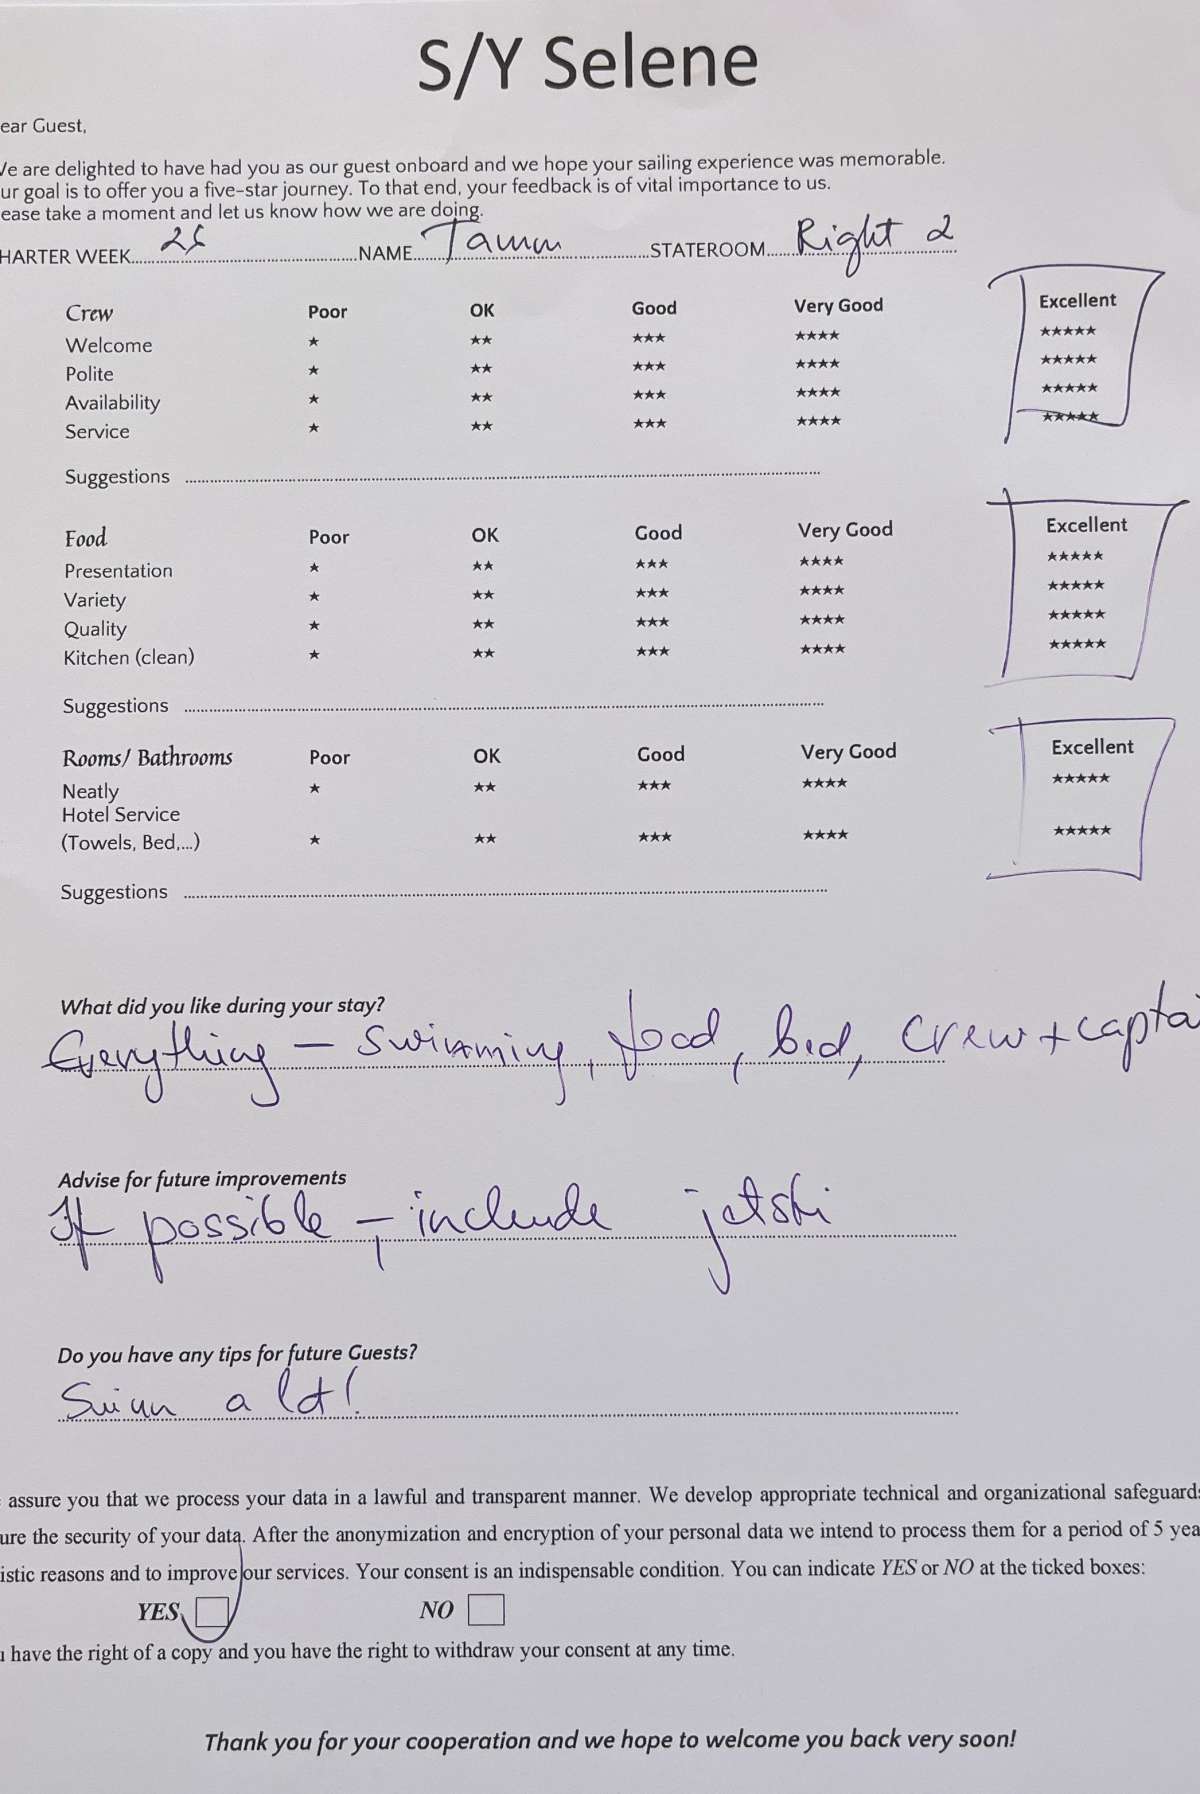 S/Y Selene
ear Guest,
We are delighted to have had you as our guest onboard and we hope your sailing experience was memorable.
ur goal is to offer you a five-star journey. To that end, your feedback is of vital importance to us.
ease take a moment and let us know how we are doing.
HARTER WEEK NAME Tamm STATEROOM Right 2
Crew Poor OK Good Very Good Excellent
Welcome ★ ★★ ★★★ ★★★★ ★★★★★
Polite ★ ★★ ★★★ ★★★★ ★★★★★
Availability ★ ★★ ★★★ ★★★★ ★★★★★
Service ★ ★★ ★★★ ★★★★ ★★★★★
Suggestions
Food Poor OK Good Very Good Excellent
Presentation ★ ★★ ★★★ ★★★★ ★★★★★
Variety ★ ★★ ★★★ ★★★★ ★★★★★
Quality ★ ★★ ★★★ ★★★★ ★★★★★
Kitchen (clean) ★ ★★ ★★★ ★★★★ ★★★★★
Suggestions
Rooms/ Bathrooms Poor OK Good Very Good Excellent
Neatly ★ ★★ ★★★ ★★★★ ★★★★★
Hotel Service
(Towels, Bed,...) ★ ★★ ★★★ ★★★★ ★★★★★
Suggestions
What did you like during your stay?
Everything – swimming, food, bed, crew + captai
Advise for future improvements
If possible – include jetski
Do you have any tips for future Guests?
Swim a lot!
assure you that we process your data in a lawful and transparent manner. We develop appropriate technical and organizational safeguards
ure the security of your data. After the anonymization and encryption of your personal data we intend to process them for a period of 5 yea
istic reasons and to improve our services. Your consent is an indispensable condition. You can indicate YES or NO at the ticked boxes:
YES NO
u have the right of a copy and you have the right to withdraw your consent at any time.
Thank you for your cooperation and we hope to welcome you back very soon!